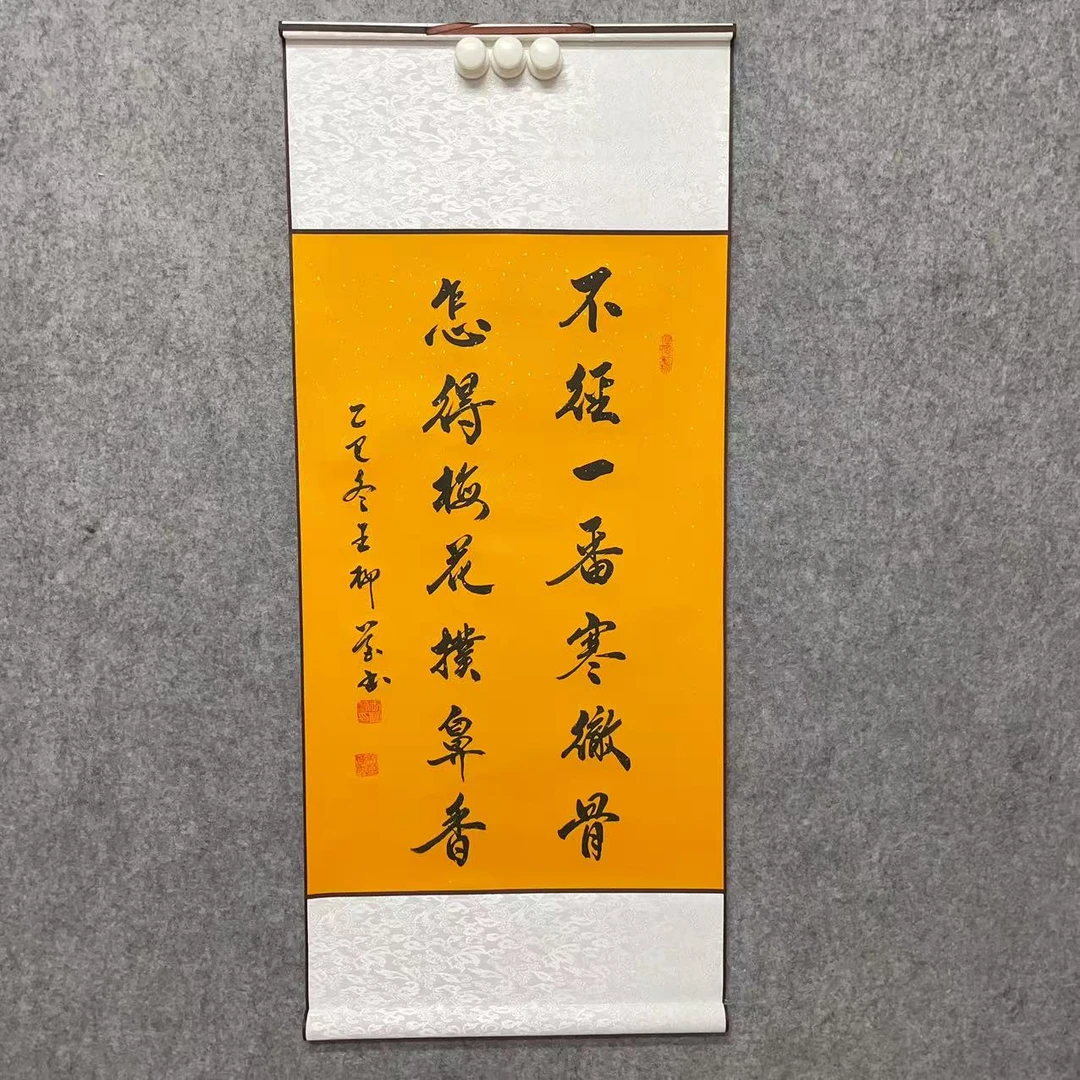 不径一番寒徹骨
怎得梅花撲鼻香
乙巳冬王柳営书